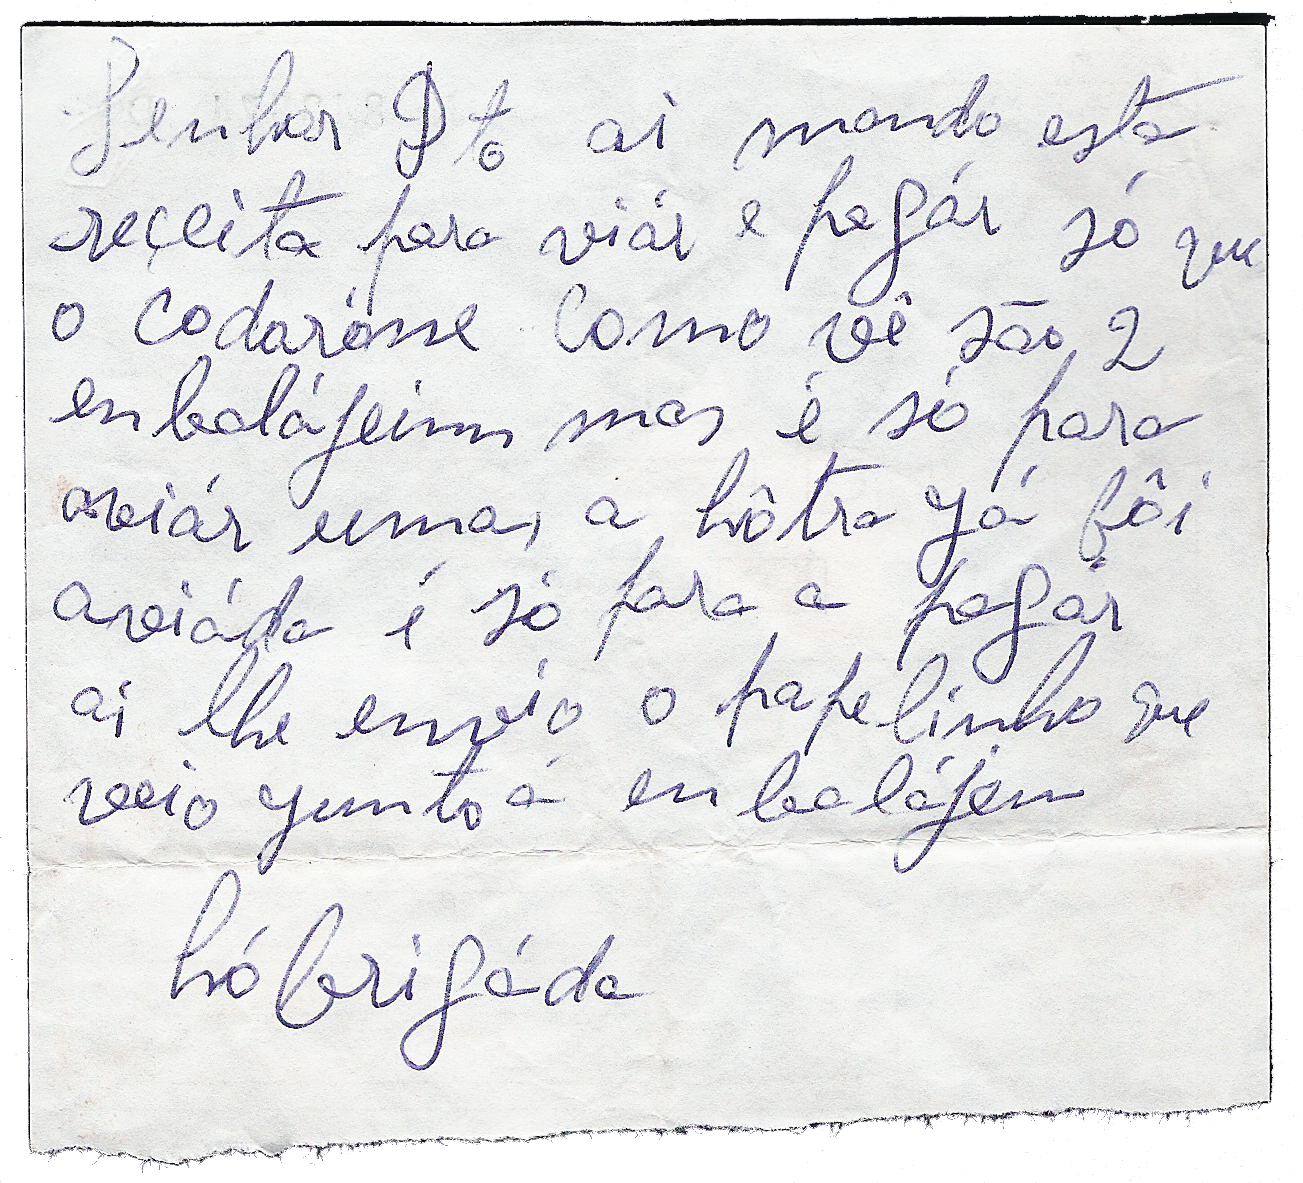 Senhor Dto ai mando esta
reçeita para viár e pagár só que
o codarónne como vê são 2
enbalájeinns mas é só para
aviár uma, a hôtra yá fôi
aviáda é só para a pagár
ai lhe envio o papelinho que
veio yunto á enbalájem
hóbrigáda